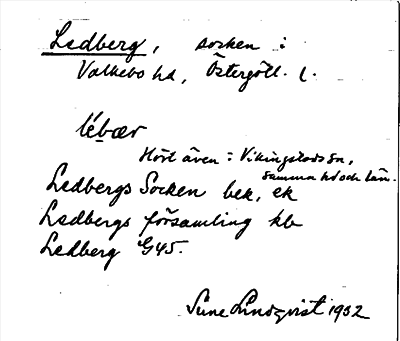 Ledberg, socken i
Valkebo hd, Östergötl. l.
lébær
Hört även: Vikingstads sn,
samma hd och län.
Ledbergs Socken bek, ek
Ledbergs församling kb
Ledberg G45.
Sune Lindqvist 1932